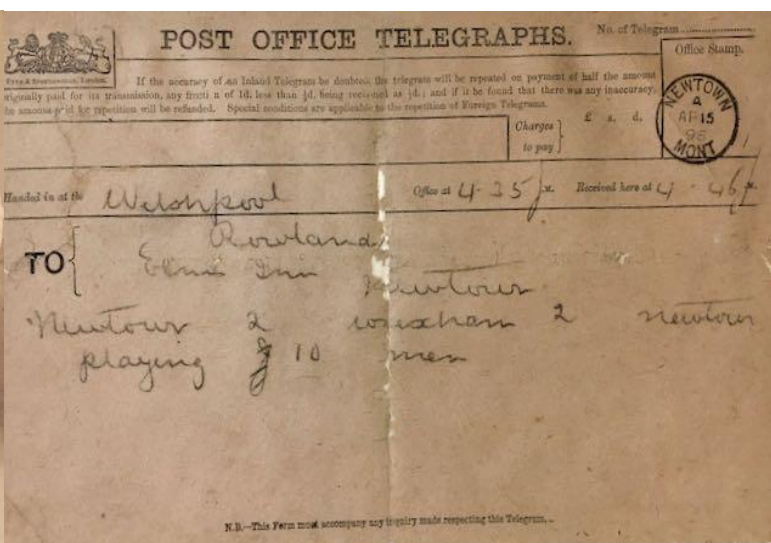 POST OFFICE TELEGRAPHS.
No. of Telegram
Office Stamp.
If the accuracy of an Inland Telegram be doubted, the telegram will be repeated on payment of half the amount
originally paid for its transmission, any fraction of 1d. less than ½d. being reckoned as ½d.; and if it be found that there was any inaccuracy,
the amount paid for repetition will be refunded. Special conditions are applicable to the repetition of Foreign Telegrams.
Charges
to pay
£ s. d.
NEWTOWN
AP 15
96
MONT
Handed in at the Welshpool Office at 4.35 p.m. Received here at 4.46 p.m.
TO
Rowland
Elms Inn
Newtown
Newtown 2 wrexham 2 newtown
playing 10 men
N.B.—This Form must accompany any inquiry made respecting this Telegram.